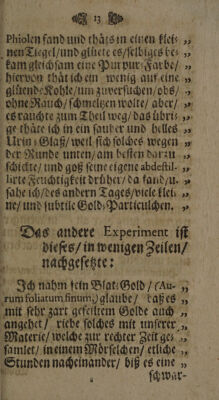 13
Phiolen fand und thäts in einen klei- „
nen Tiegel/ und glüete es/ selbiges be- „
kam gleichsam eine Purpur-Farbe/ „
hiervon thät ich ein wenig auf eine „
glüende Kohle/ um zuversuchen/ obs/ „
ohne Rauch/ schmeltzen wolte/ aber/ „
es rauchte zum Theil weg/ das übri- „
ge thäte ich in ein sauber und helles „
Urin-Glaß/ weil sich solches wegen „
der Runde unten/ am besten darzu „
schickte/ und goß seine eigene abdestil- „
lirte Feuchtigkeit drüber/ da fand/ u. „
sahe ich/ des andern Tages/ viele klei- „
ne/ und subtile Gold-Particulchen. „
Das andere Experiment ist
dieses/ in wenigen Zeilen/
nachgesetzte:
Ich nahm fein Blat-Gold/ (Au- „
rum foliatum, finum,) glaube/ daß es „
mit sehr zart gefeiltem Golde auch „
angehet/ riebe solches mit unserer „
Materie/ welche zur rechter Zeit ge- „
samlet/ in einem Mörselchen/ etliche „
Stunden nacheinander/ biß es eine „
schwar-